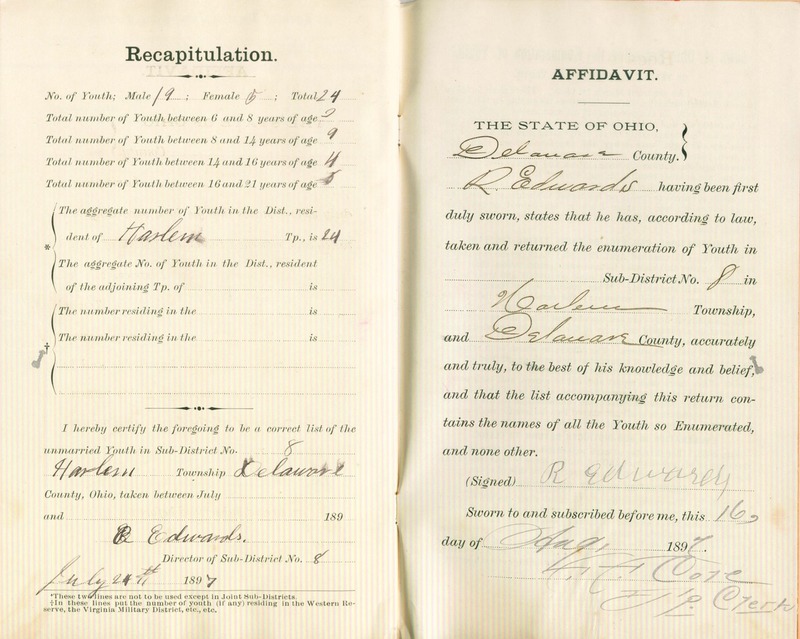 Recapitulation.
No. of Youth; Male 19; Female 5; Total 24
Total number of Youth between 6 and 8 years of age
Total number of Youth between 8 and 14 years of age 9
Total number of Youth between 14 and 16 years of age 4
Total number of Youth between 16 and 21 years of age
The aggregate number of Youth in the Dist., resi-
* dent of Harlem Tp., is 24
The aggregate No. of Youth in the Dist., resident
of the adjoining Tp. of is
The number residing in the is
† The number residing in the is
I hereby certify the foregoing to be a correct list of the
unmarried Youth in Sub-District No. 8
Harlem Township Delaware
County, Ohio, taken between July
and 189
R Edwards.
Director of Sub-District No. 8
July 24th 1897
*These two lines are not to be used except in Joint Sub-Districts.
†In these lines put the number of youth (if any) residing in the Western Re-
serve, the Virginia Military District, etc., etc.
AFFIDAVIT.
THE STATE OF OHIO,
Delaware County.
R. Edwards having been first
duly sworn, states that he has, according to law,
taken and returned the enumeration of Youth in
Sub-District No. 8 in
Harlem Township,
and Delaware County, accurately
and truly, to the best of his knowledge and belief,
and that the list accompanying this return con-
tains the names of all the Youth so Enumerated,
and none other.
(Signed) R Edwards
Sworn to and subscribed before me, this 16
day of Aug. 1897.
Clerk